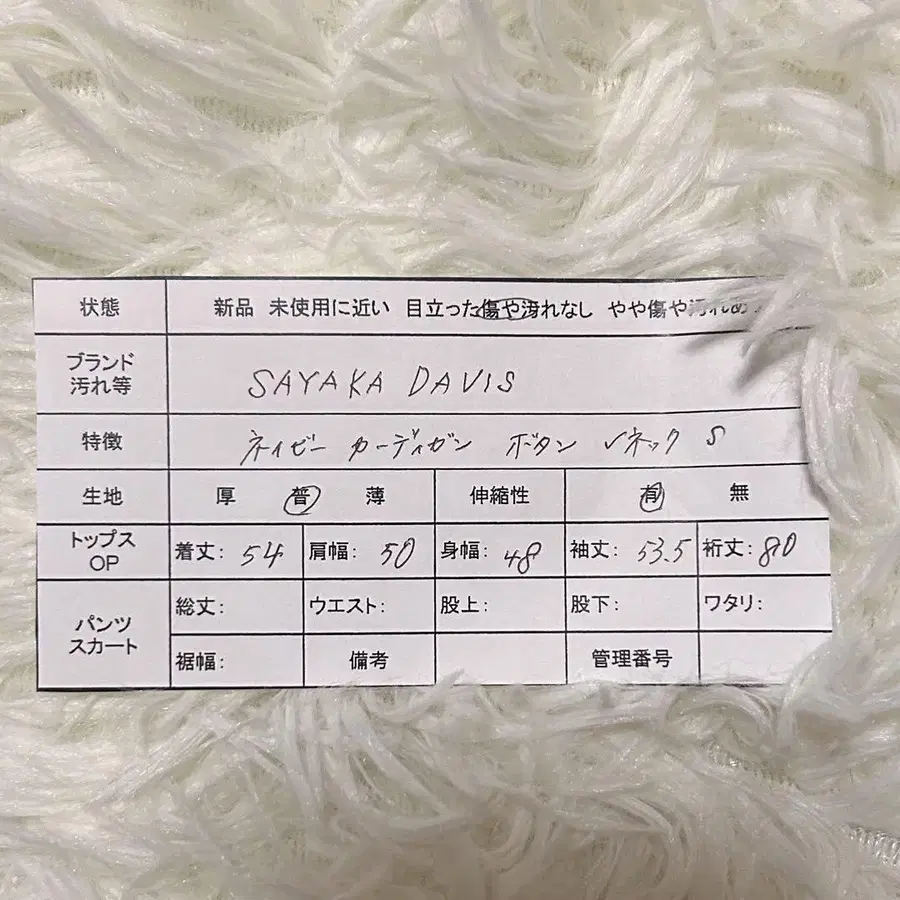 状態 新品 未使用に近い 目立った傷や汚れなし やや傷や汚れあ
ブランド
汚れ等 SAYAKA DAVIS
特徴 ネイビー カーディガン ボタン Vネック S
生地 厚 普 薄 伸縮性 有 無
トップス
OP 着丈: 54 肩幅: 50 身幅: 48 袖丈: 53.5 裄丈: 80
パンツ
スカート 総丈: ウエスト: 股上: 股下: ワタリ:
裾幅: 備考 管理番号